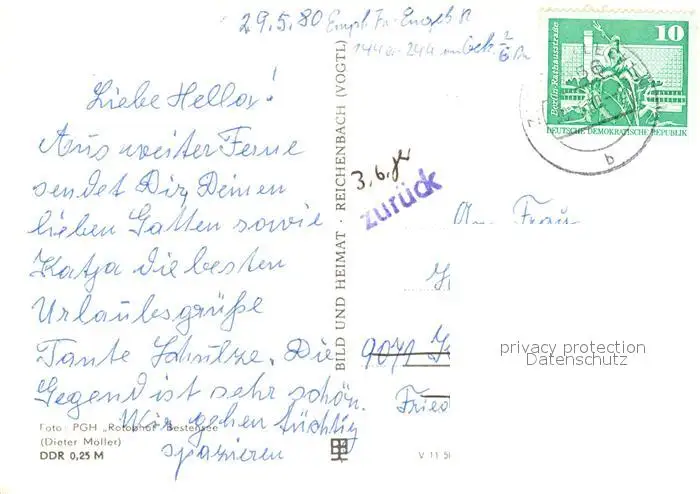 29.5.80 Empf. Fr. Engeb
Liebe Hella!
Aus weiter Ferne
sendet Dir, Deinen
lieben Gatten sowie
Katja die besten
Urlaubsgrüße
Tante Schulze. Die
Gegend ist sehr schön.
Wir gehen tüchtig
spazieren
Foto: PGH „Rotophot" Bestensee
(Dieter Möller)
DDR 0,25 M
BILD UND HEIMAT · REICHENBACH (VOGTL)
3.6.
zurück
Berlin-Rathausstraße
10
DEUTSCHE DEMOKRATISCHE REPUBLIK
b
An Frau
9071
Fried
V 11 50
privacy protection
Datenschutz